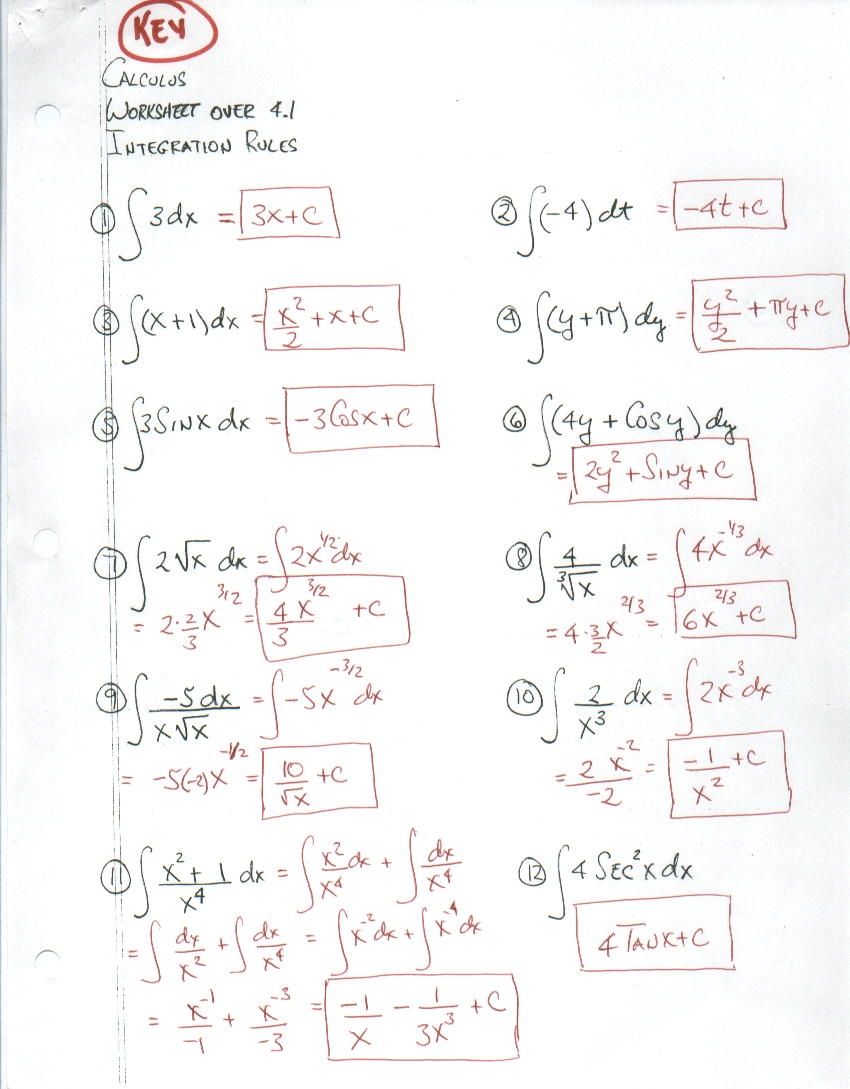 KEY
CALCULUS
WORKSHEET OVER 4.1
INTEGRATION RULES
① ∫ 3dx = 3x+C
② ∫(-4) dt = -4t+C
③ ∫(x+1)dx = x²/2 + x + C
④ ∫(y+π) dy = y²/2 + πy + C
⑤ ∫3SINX dx = -3 Cosx + C
⑥ ∫(4y + Cosy) dy
= 2y² + SINy + C
⑦ ∫ 2√x dx = ∫2x^(1/2) dx
= 2·2/3 x^(3/2) = 4x^(3/2)/3 + C
⑧ ∫ 4/∛x dx = ∫4x^(-1/3) dx
= 4·3/2 x^(2/3) = 6x^(2/3) + C
⑨ ∫ -5dx/(x√x) = ∫-5x^(-3/2) dx
= -5(-2)x^(-1/2) = 10/√x + C
⑩ ∫ 2/x³ dx = ∫2x^(-3) dx
= 2x^(-2)/-2 = -1/x² + C
⑪ ∫ (x²+1)/x⁴ dx = ∫ x²dx/x⁴ + ∫ dx/x⁴
= ∫ dx/x² + ∫ dx/x⁴ = ∫x^(-2) dx + ∫x^(-4) dx
= x^(-1)/-1 + x^(-3)/-3 = -1/x - 1/3x³ + C
⑫ ∫4 SEC²x dx
4 TANX+C